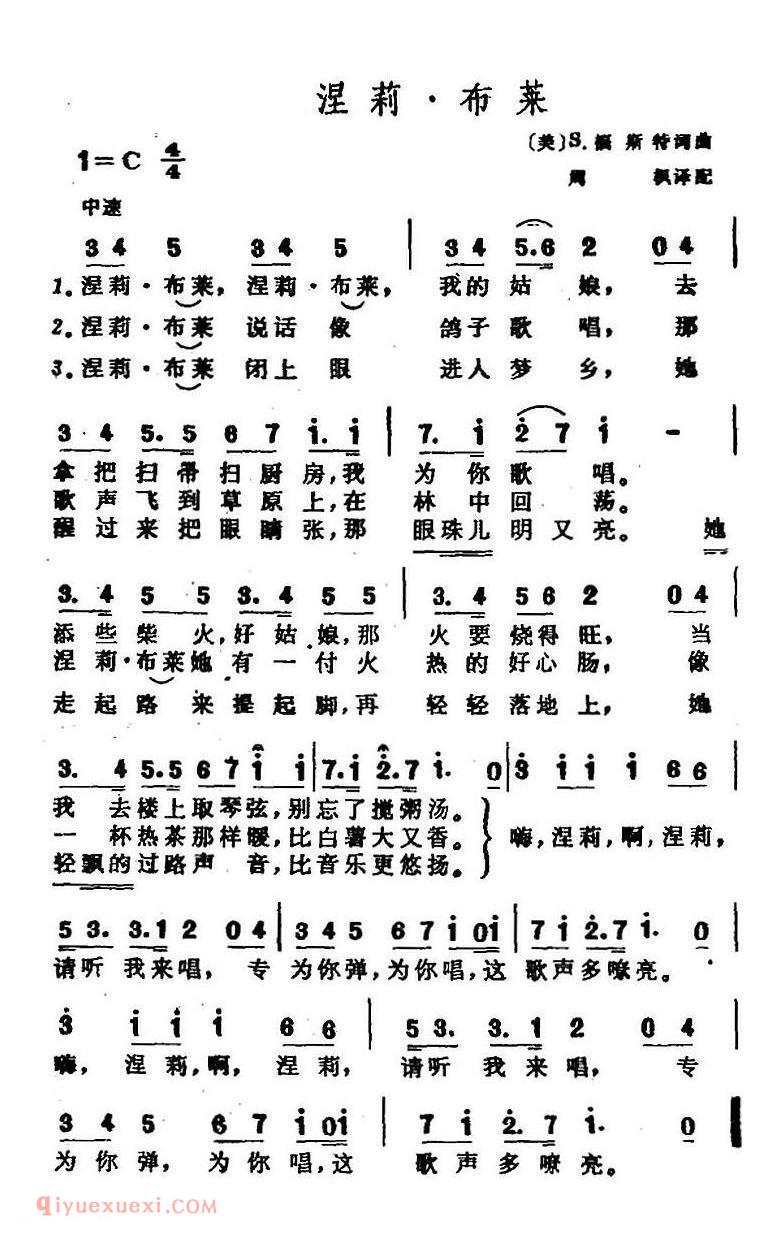 涅莉·布莱
〔美〕S.福斯特词曲
1=C 4/4
周 枫译配
中速
3 4 5 3 4 5 | 3 4 5.6 2 0 4 |
1.涅莉·布莱,涅莉·布莱, 我的姑娘, 去
2.涅莉·布莱 说话像 鸽子歌唱, 那
3.涅莉·布莱 闭上眼 进人梦乡, 她
3 4 5. 5 6 7 i. i | 7. i 2 7 i - |
拿把扫帚扫厨房,我 为你歌唱。
歌声飞到草原上,在 林中回荡。
醒过来把眼睛张,那 眼珠儿明又亮。 她
3. 4 5 5 3. 4 5 5 | 3. 4 5 6 2 0 4 |
添些柴火,好姑娘,那 火要烧得旺, 当
涅莉·布莱她有一付火 热的好心肠, 像
走起路来提起脚,再 轻轻落地上, 她
3. 4 5.5 6 7 i i | 7.i 2.7 i. 0 | 3 i i i 6 6 |
我去楼上取琴弦,别忘了搅粥汤。
一杯热茶那样暖,比白薯大又香。 嗨,涅莉,啊,涅莉,
轻飘的过路声音,比音乐更悠扬。
5 3. 3.1 2 0 4 | 3 4 5 6 7 i 0 i | 7 i 2.7 i. 0 |
请听我来唱, 专为你弹,为你唱,这歌声多嘹亮。
3 i i i 6 6 | 5 3. 3. 1 2 0 4 |
嗨, 涅莉,啊, 涅莉, 请听我来唱, 专
3 4 5 6 7 i 0 i | 7 i 2. 7 i. 0
为你弹, 为你唱,这 歌声多嘹亮。
qiyuexuexi.com